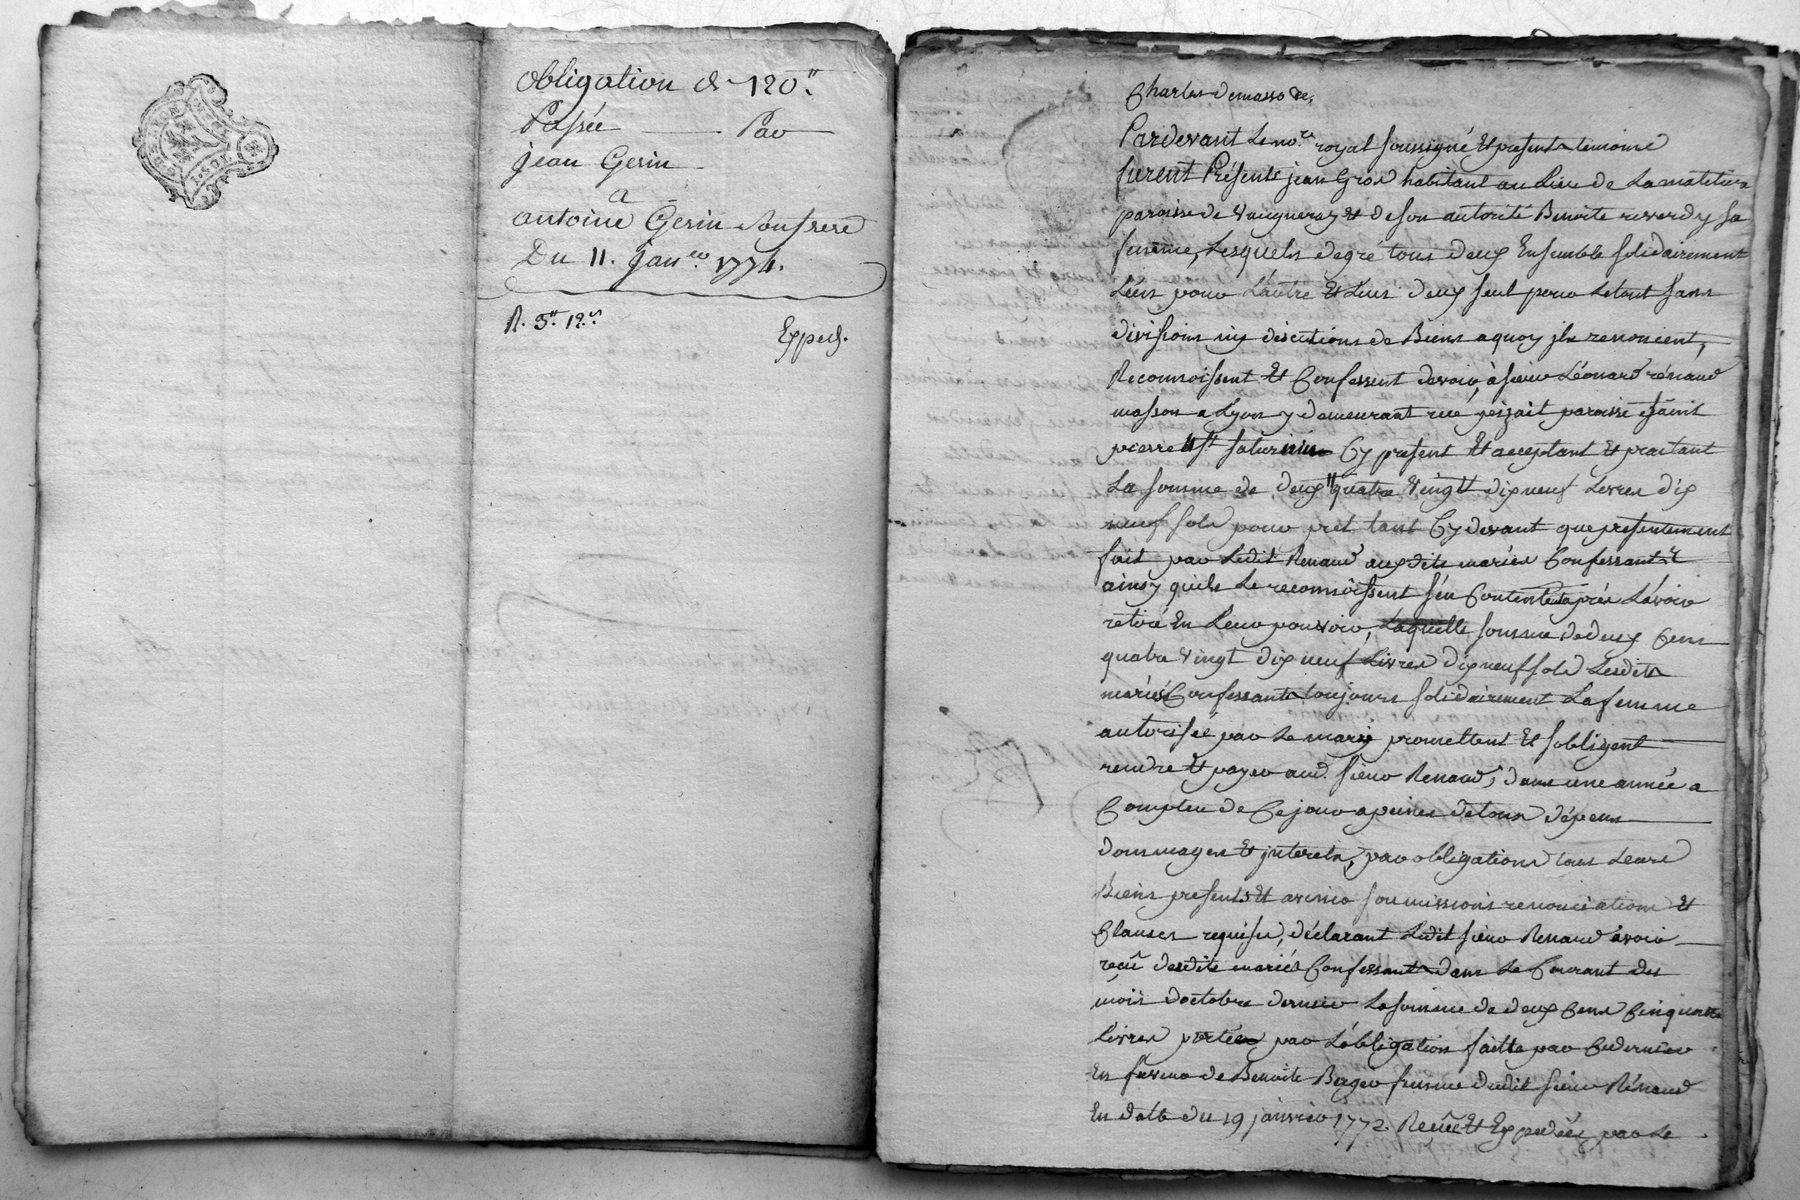 obligation de 120"
Passée Par
jean Gerin
a
antoine Gerin son frere
Du 11. janer. 1774.
R. 3" 12s
Exped.
Charles demasso &c.
Pardevant Le nore royal soussigné et presents temoins
furent Présents jean Gros habitant au Lieu de La
paroisse de vaugneray et de son autorité Benoite reverdy sa
femme, Lesquels de gré tous deux Ensemble solidairement
L'un pour L'autre et L'un d'eux seul pour Le tout sans
divisions ny discutions de Biens a quoy ils renoncient,
Reconnoissent et Confessent devoir, à sieur Léonard rénaud
masson a Lyon y demeurant rue paroisse saint
pierre et st saturnin Cy present et acceptant et
La somme de deux cent quatre vingt dix neuf Livres dix
neuf sols pour prêt tant Cy devant que presentement
fait par Ledit Renaud auxdits mariés Confessants et
ainsy qu'ils Le reconnoissent s'en Contente après L'avoir
retiré En Leur pouvoir, Laquelle somme de deux Cens
quatre vingt dix neuf Livres dix neuf sols Lesdits
mariés Confessants toujours solidairement La femme
autorisée par Le mary promettent et s'obligent
rendre et payer aud. sieur Renaud, dans une année a
Compter de Ce jour a peines de tous dépens
dommages et jnterets, par obligations tous Leurs
Biens presents et avenir soumissions renonciations et
Clauses requises, déclarant Ledit sieur Renaud avoir
reçû desdits mariés Confessants dans Le Courant du
mois d'octobre dernier La somme de deux Cens Cinquante
Livres portée par L'obligation faitte par Ce dernier
En faveur de Benoite Bager femme dudit sieur Rénaud
En datte du 19 janvier 1772. Recüe et Expediée par Le